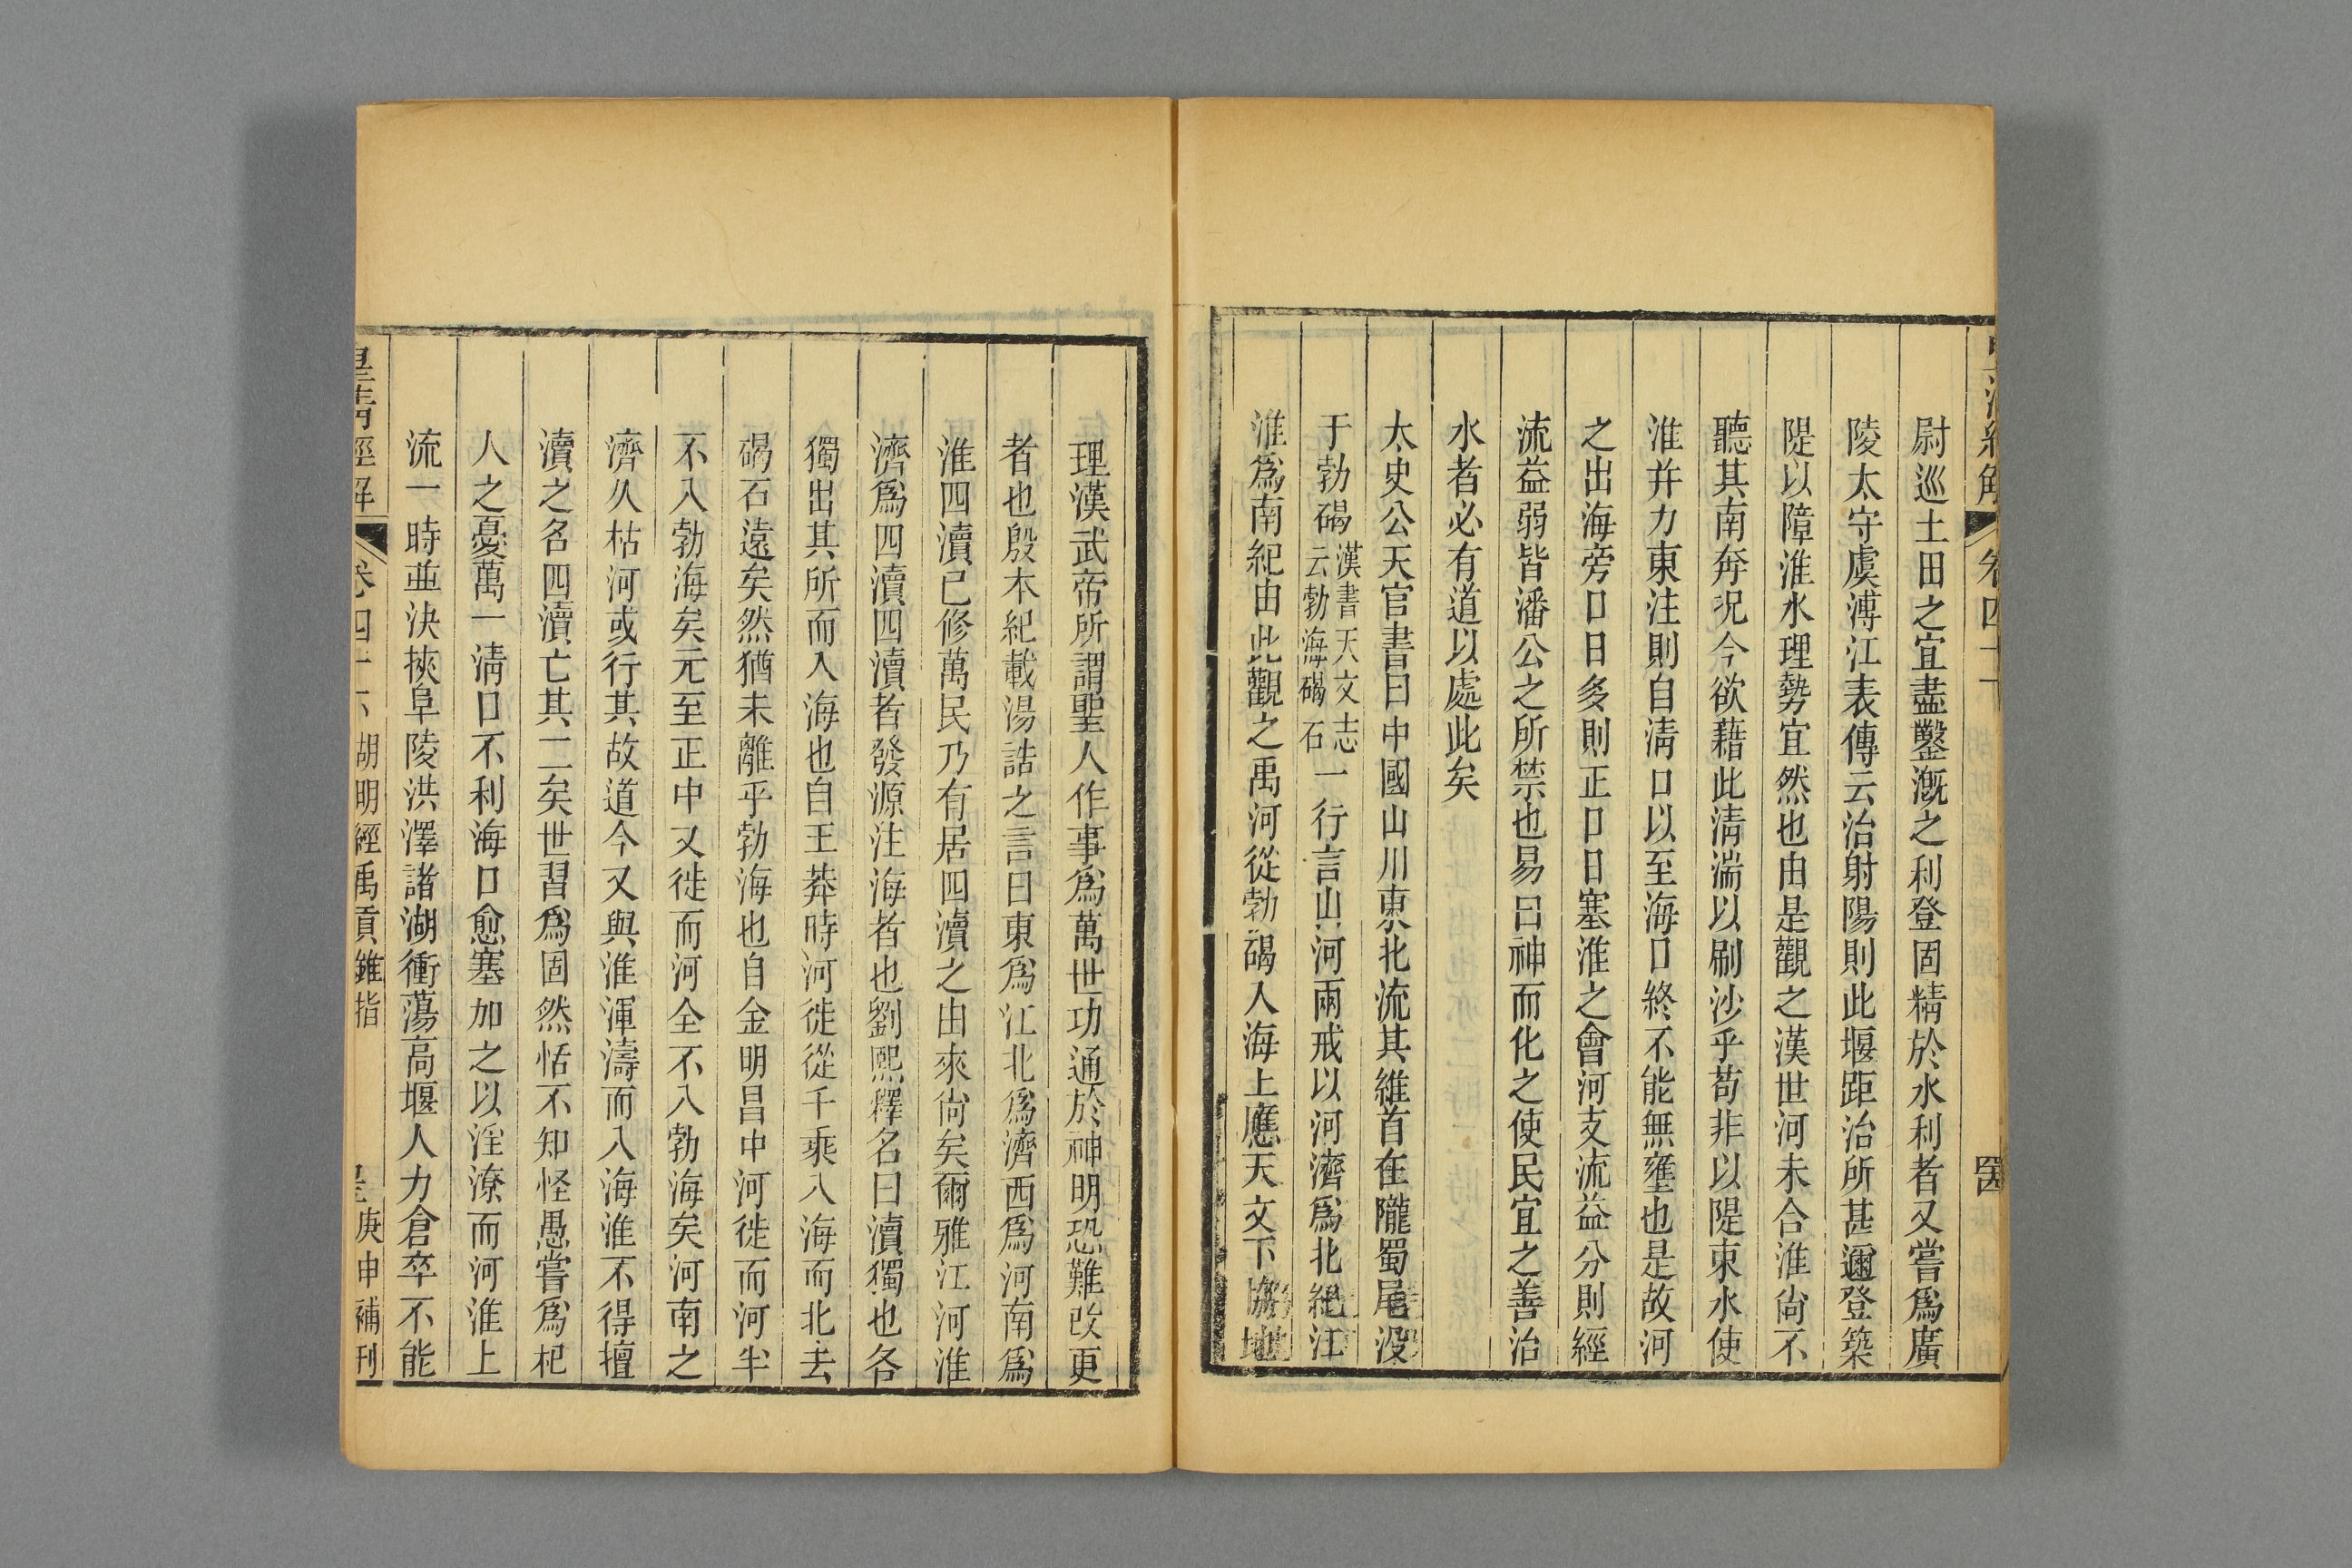 尉巡土田之宜盡鑿漑之利登固精於水利者又嘗爲廣
陵太守虞溥江表傳云治射陽則此堰距治所甚邇登築
隄以障淮水理勢宜然也由是觀之漢世河未合淮尙不
聽其南奔況今欲藉此淸湍以刷沙乎苟非以隄束水使
淮幷力東注則自淸口以至海口終不能無壅也是故河
之出海旁口日多則正口日塞淮之會河支流益分則經
流益弱皆潘公之所禁也易曰神而化之使民宜之善治
水者必有道以處此矣
太史公天官書曰中國山川東北流其維首在隴蜀尾没
于勃碣漢書天文志云勃海碣石一行言山河兩戒以河濟爲北紀江
淮爲南紀由此觀之禹河從勃碣入海上應天文下協地
理漢武帝所謂聖人作事爲萬世功通於神明恐難改更
者也殷本紀載湯誥之言曰東爲江北爲濟西爲河南爲
淮四瀆已修萬民乃有居四瀆之由來尙矣爾雅江河淮
濟爲四瀆四瀆者發源注海者也劉熙釋名曰瀆獨也各
獨出其所而入海也自王莽時河徙從千乘入海而北去
碣石遠矣然猶未離乎勃海也自金明昌中河徙而河半
不入勃海矣元至正中又徙而河全不入勃海矣河南之
濟久枯河或行其故道今又與淮渾濤而入海淮不得擅
瀆之名四瀆亡其二矣世習爲固然恬不知怪愚嘗爲杞
人之憂萬一淸口不利海口愈塞加之以淫潦而河淮上
流一時並決挾阜陵洪澤諸湖衝蕩高堰人力倉卒不能
皇淸經解 卷四十六 胡明經禹貢錐指 庚申補刊